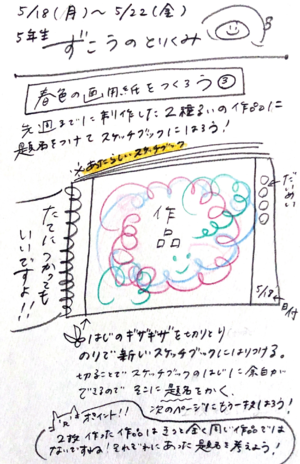 5/18(月)〜5/22(金)
5年生 ずこうのとりくみ
春色の画用紙をつくろう③
先週までに制作した2種るいの作品に
題名をつけてスケッチブックにはろう!
※あたらしいスケッチブック
たてにつかっても
いいですよ!!
作品
だいめい
5/18
日付
はじのギザギザを切りとり
のりで新しいスケッチブックにはりつける。
切ることでスケッチブックのはじに余白が
できるので そこに題名をかく。
次のページにもう一枚はろう!
ポイント!!
2枚作った作品はきっと全く同じ作品では
ないですよね!それぞれにあった題名を考えよう!